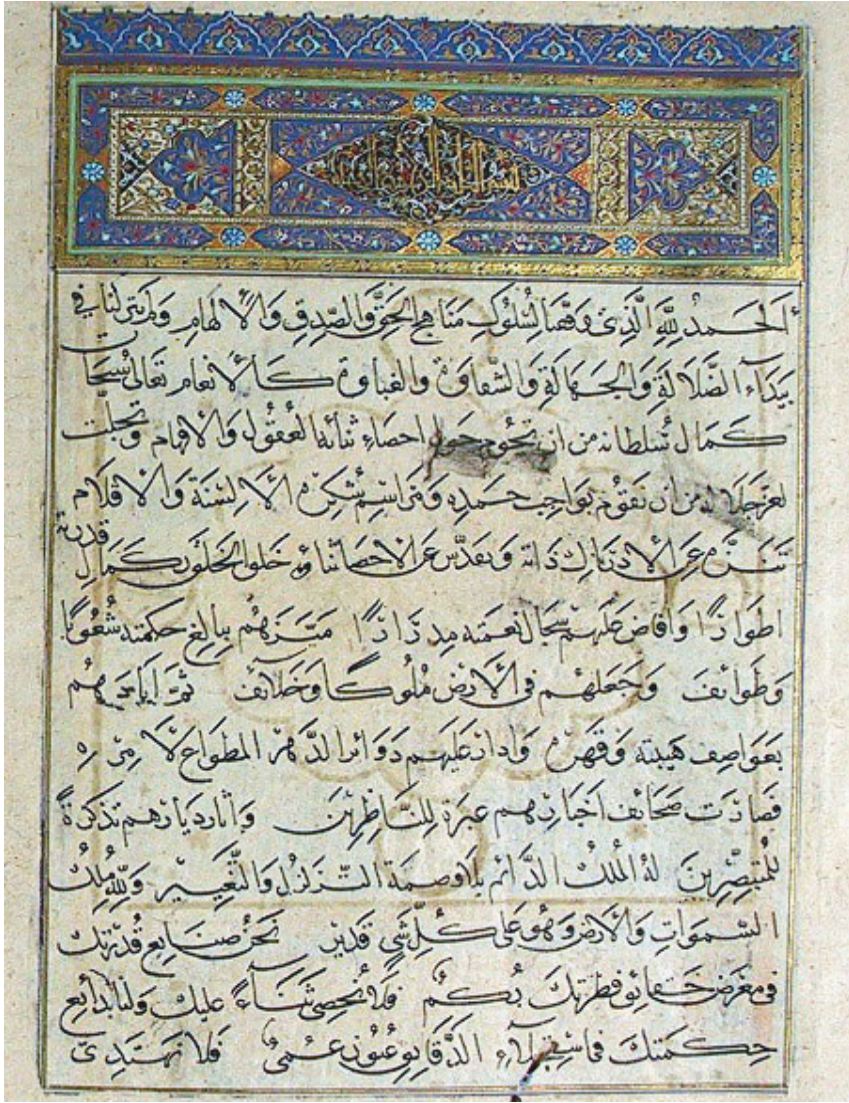 الحمد لله الذى وفقنا لسلوك مناهج الحق والصدق والالهام ولم يتركنا في
بيداء الضلالة والجهالة والشقاوة والغباوة كالانعام تعالى سبحات
كمال سلطانه من ان تحوم حول احصاء ثنائه العقول والافهام وتجلت
لعز جلاله من ان تقوم بواجب حمده ومراسم شكره الالسنة والاقلام
تنزه عن الادراك ذاته وتقدس عن الاحصا ثناؤه خلق الخلق بكمال قدرته
اطوارا وافاض عليهم سجال نعمته مدرارا ميزهم ببالغ حكمته شعوبا
وطوائف وجعلهم فى الارض ملوكا وخلائف ثم ابادهم
بعواصف هيبته وقهره وادار عليهم دوائر الدهر المطواع لامره
فصارت صحائف اخبارهم عبرة للناظرين واثار ديارهم تذكرة
للمتبصرين له الملك الدائم بلا وصمة التزلزل والتغيير ولله ملك
السموات والارض وهو على كل شي قدير نحن صنايع قدرتك
فى معرض حقائق فطرتك بكم فلا نحصى ثناء عليك ولنا بدائع
حكمتك الدقايق عيون عمى فلا نهتدى